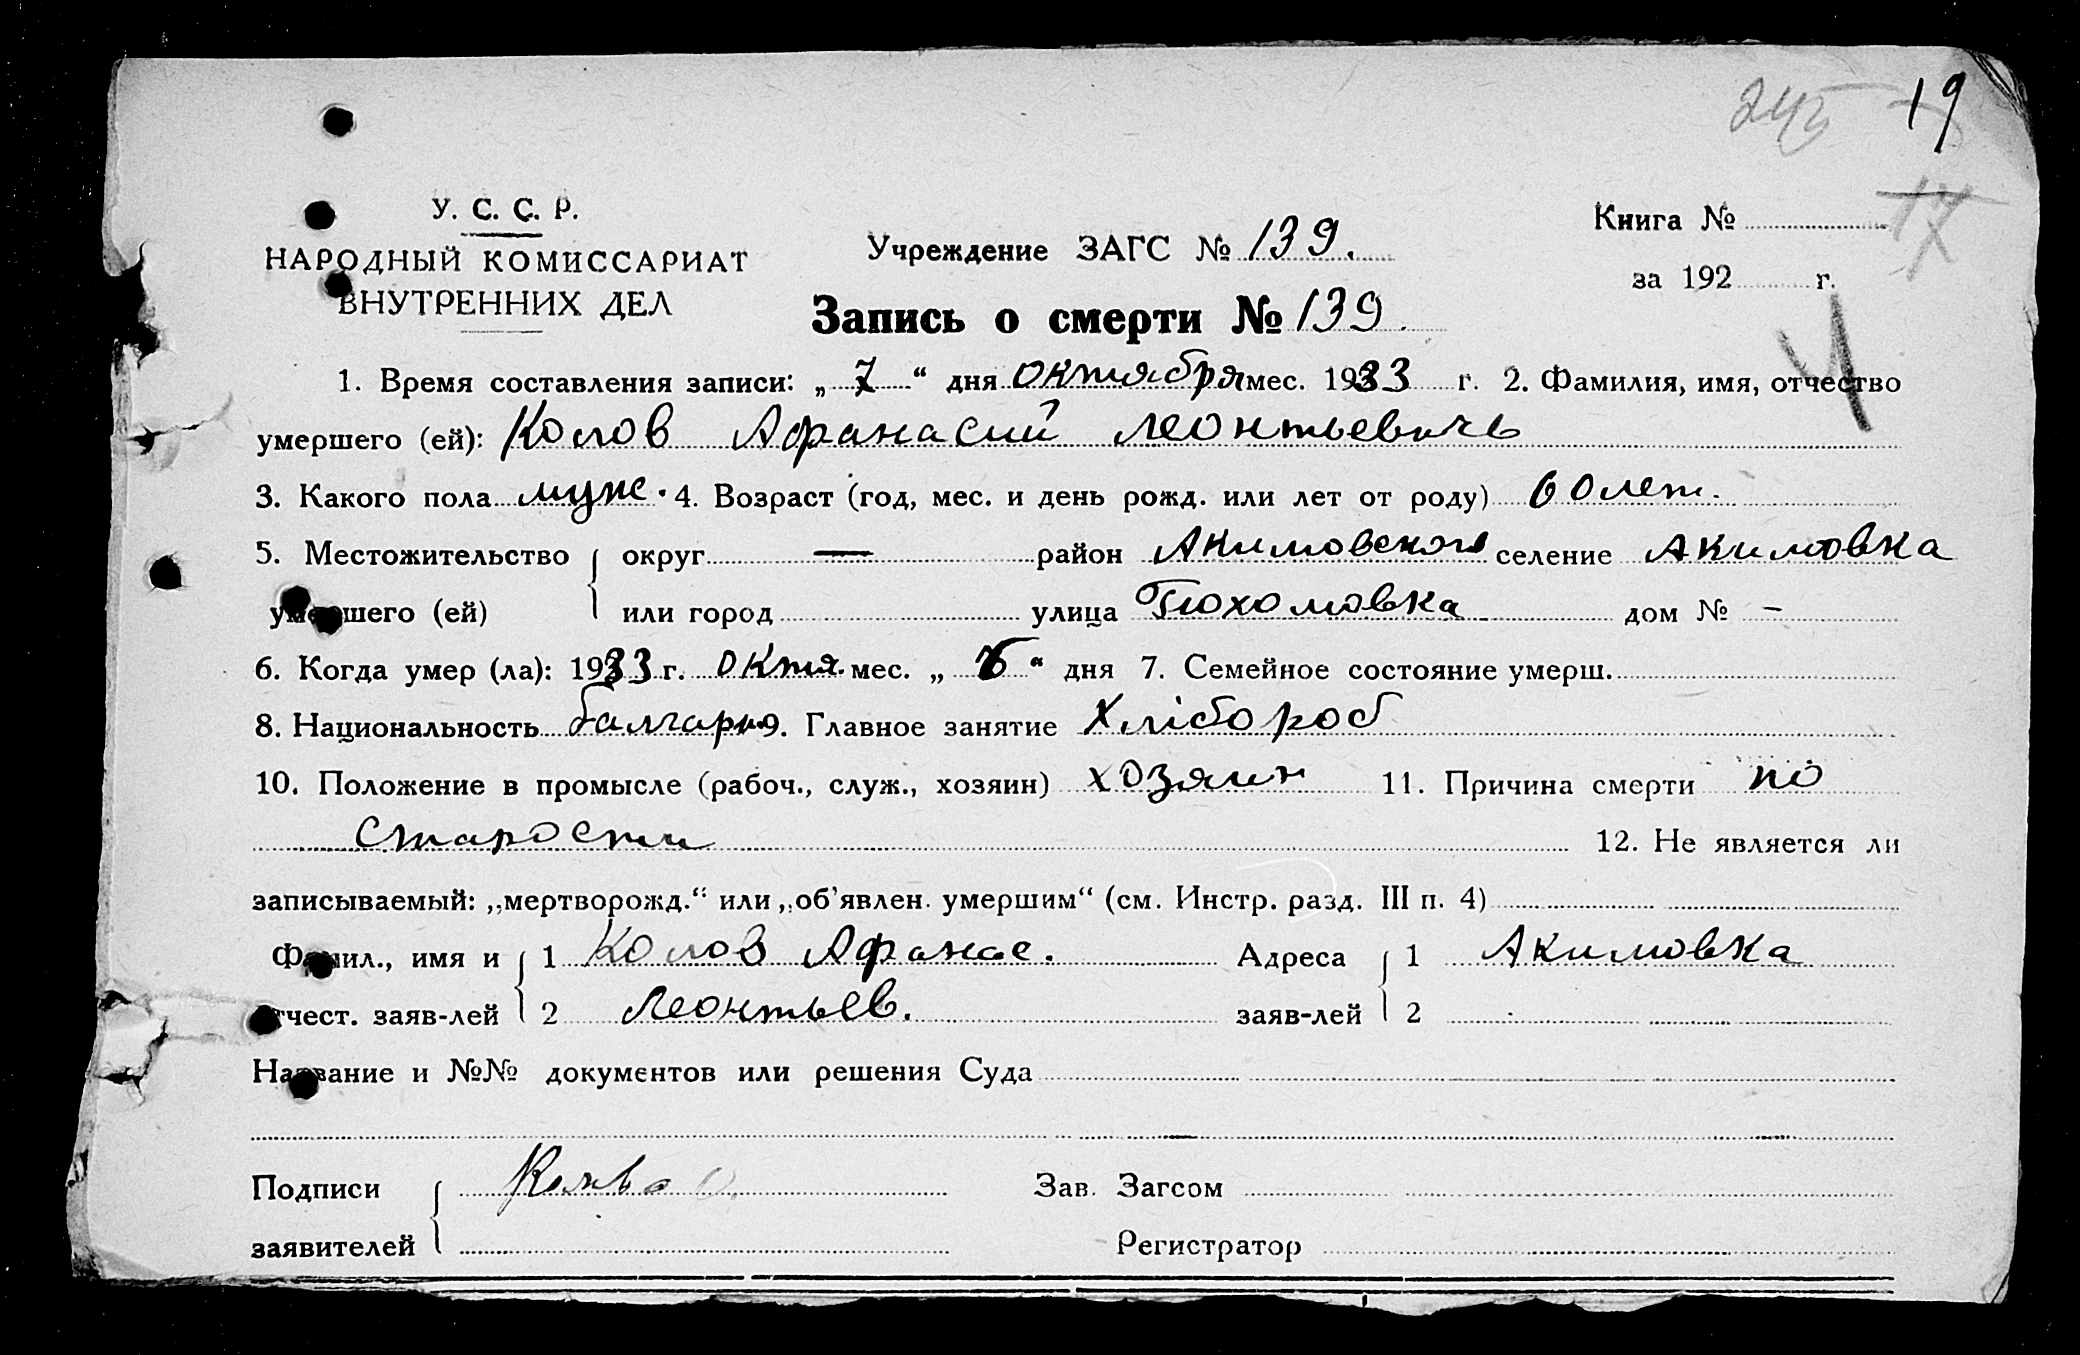 245 19
17
У. С. С. Р.
НАРОДНЫЙ КОМИССАРИАТ
ВНУТРЕННИХ ДЕЛ
Учреждение ЗАГС № 139.
Книга №
за 192 г.
Запись о смерти № 139.
1. Время составления записи: „ 7 “ дня октября мес. 1933 г. 2. Фамилия, имя, отчество
умершего (ей): Колов Афанасий Леонтьевичь
3. Какого пола муж. 4. Возраст (год, мес. и день рожд. или лет от роду) 60 лет.
5. Местожительство округ — район Акимовского селение Акимовка
умершего (ей) или город улица дом № –
6. Когда умер (ла): 1933 г. октя. мес. „ 6 “ дня 7. Семейное состояние умерш.
8. Национальность 9. Главное занятие Хлібороб
10. Положение в промысле (рабоч., служ., хозяин) хозяин 11. Причина смерти по
старости 12. Не является ли
записываемый: „мертворожд.“ или „об’явлен. умершим“ (см. Инстр. разд. III п. 4)
Фамил., имя и 1 Колов Афанас. Адреса 1 Акимовка
отчест. заяв-лей 2 Леонтьев. заяв-лей 2
Название и №№ документов или решения Суда
Подписи Зав. Загсом
заявителей Регистратор